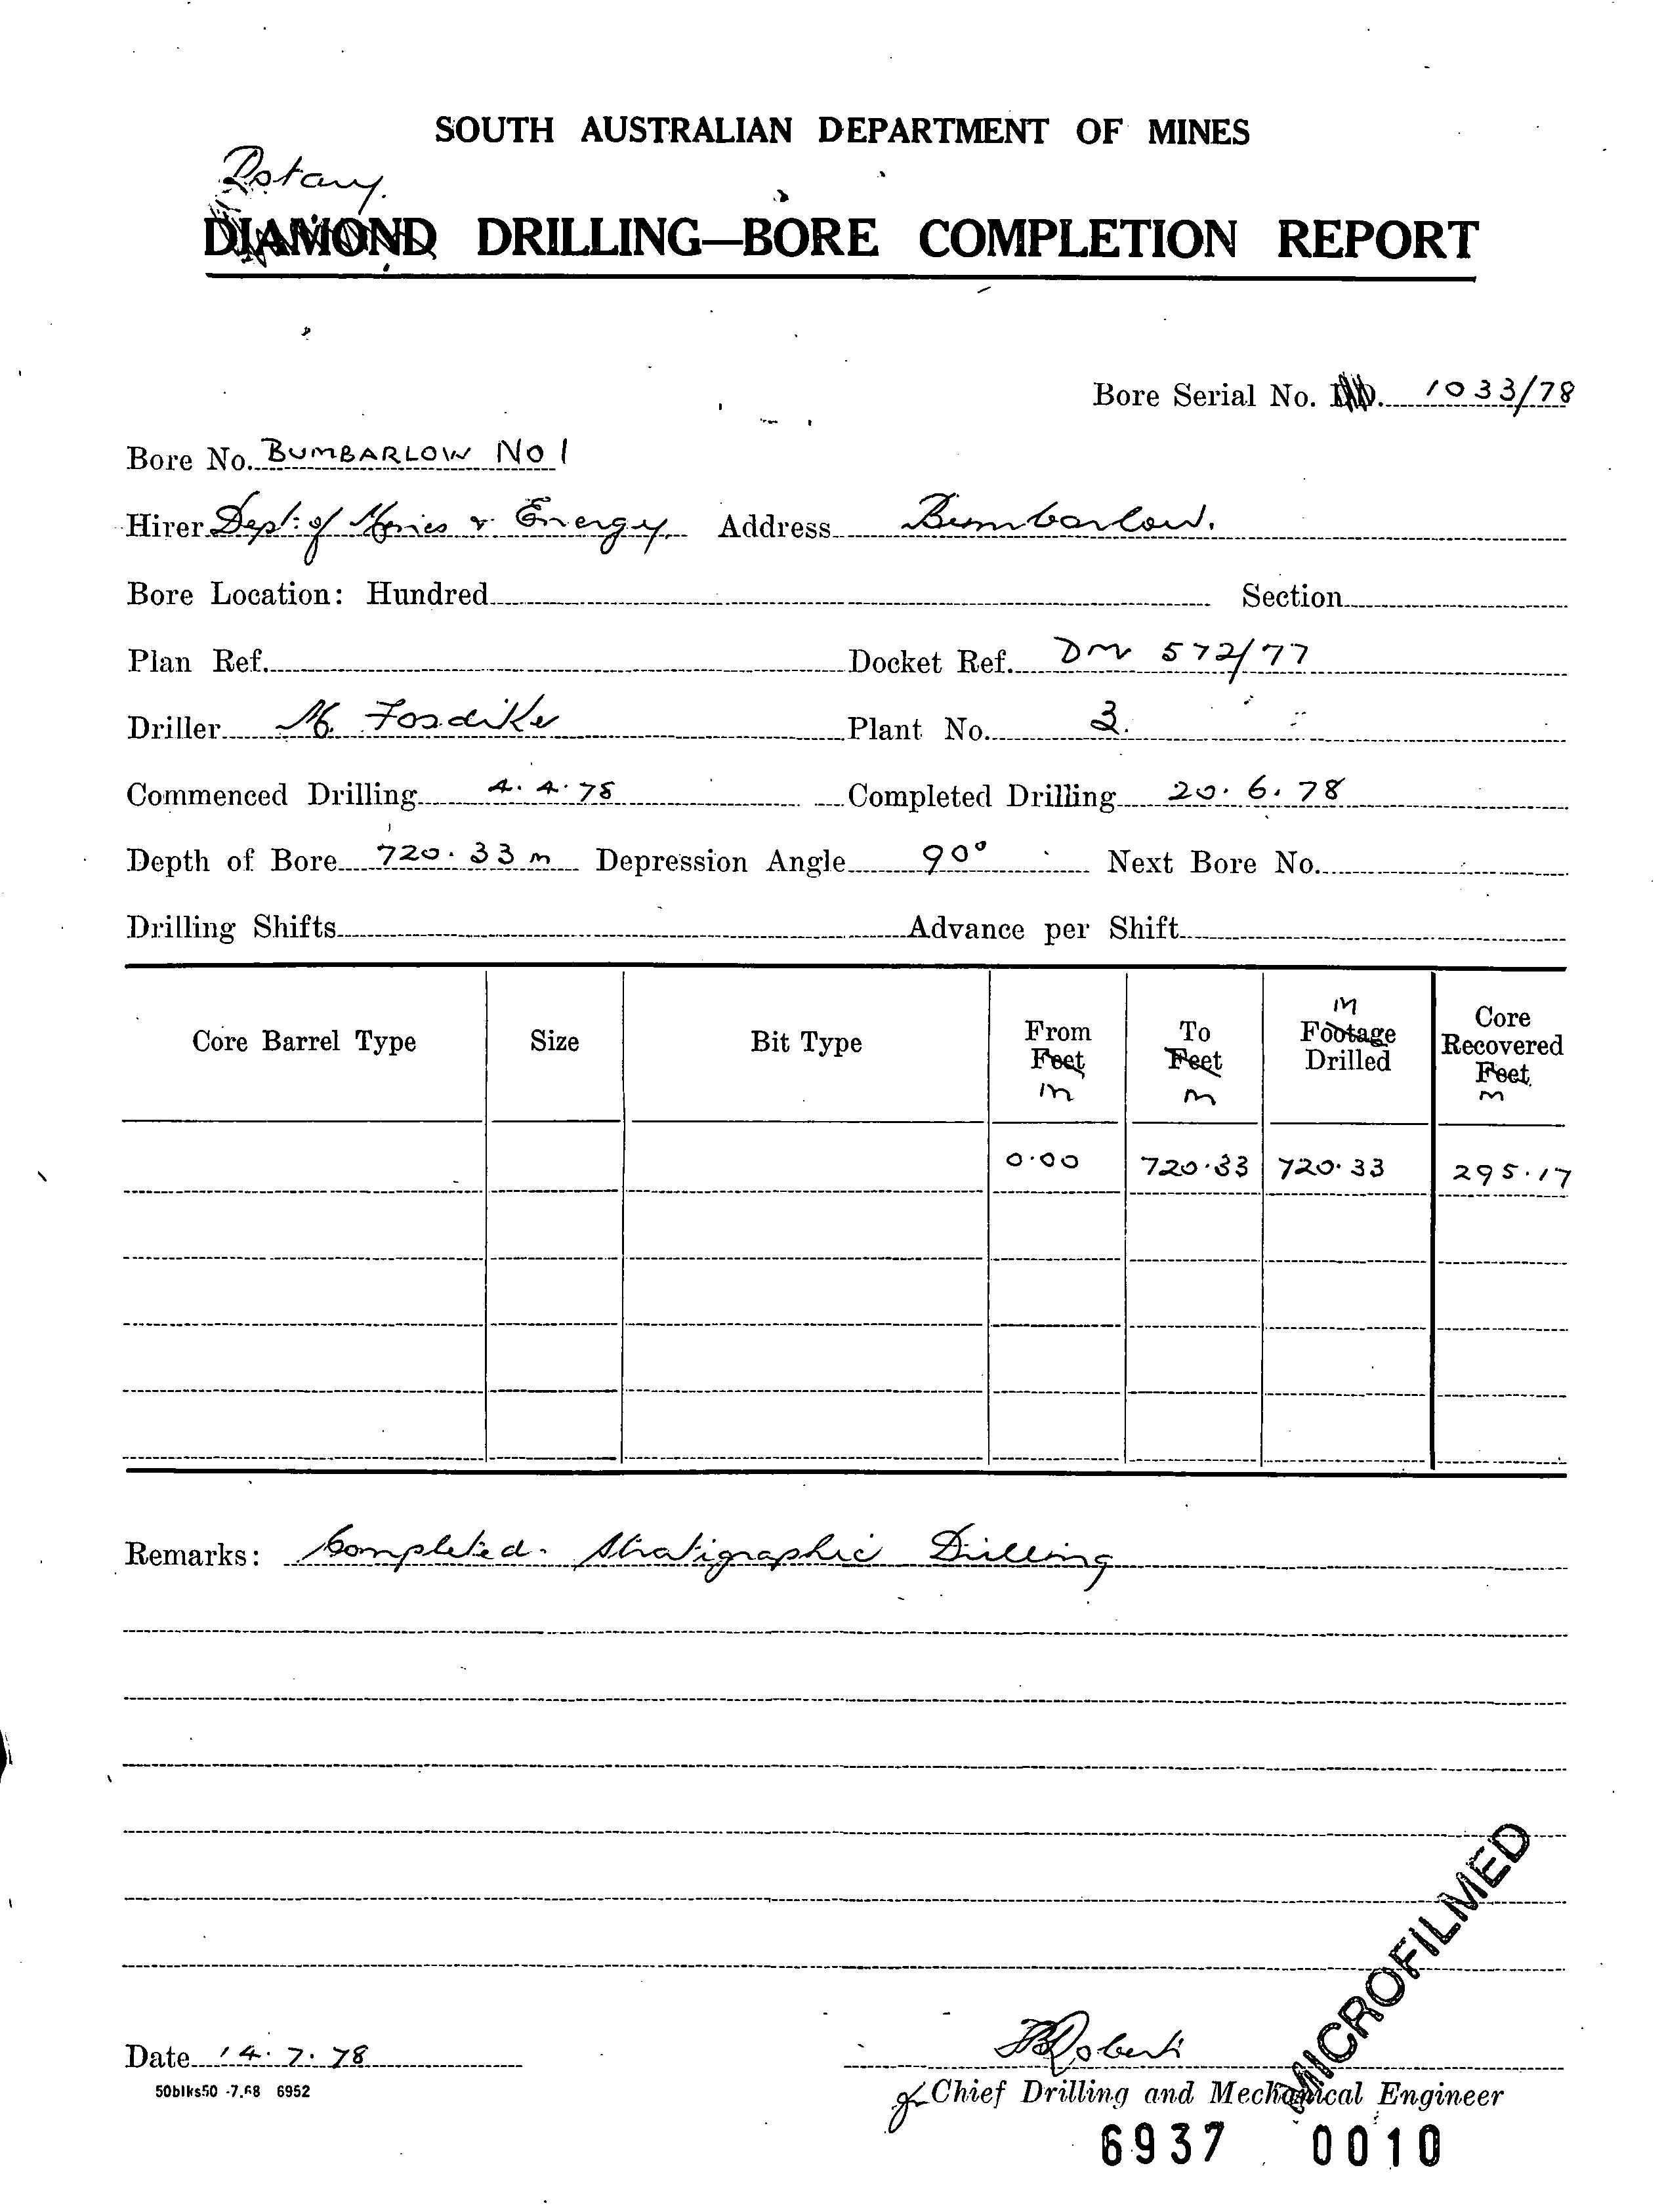 SOUTH AUSTRALIAN DEPARTMENT OF MINES
Rotary.
DIAMOND DRILLING—BORE COMPLETION REPORT
Bore Serial No. DD. 1033/78
Bore No. BUMBARLOW NO 1
Hirer Dept. of Mines & Energy. Address Bumbarlow.
Bore Location: Hundred Section
Plan Ref. Docket Ref. DM 572/77
Driller M. Fosdike Plant No. 3.
Commenced Drilling 4.4.78 Completed Drilling 20.6.78
Depth of Bore 720.33 m Depression Angle 90° Next Bore No.
Drilling Shifts Advance per Shift
Core Barrel Type Size Bit Type From Feet m To Feet m m Footage Drilled Core Recovered Feet m
0.00 720.33 720.33 295.17
Remarks: Completed. Stratigraphic Drilling
MICROFILMED
Date 14.7.78
50blks50 -7.68 6952
Chief Drilling and Mechanical Engineer
6937 0010